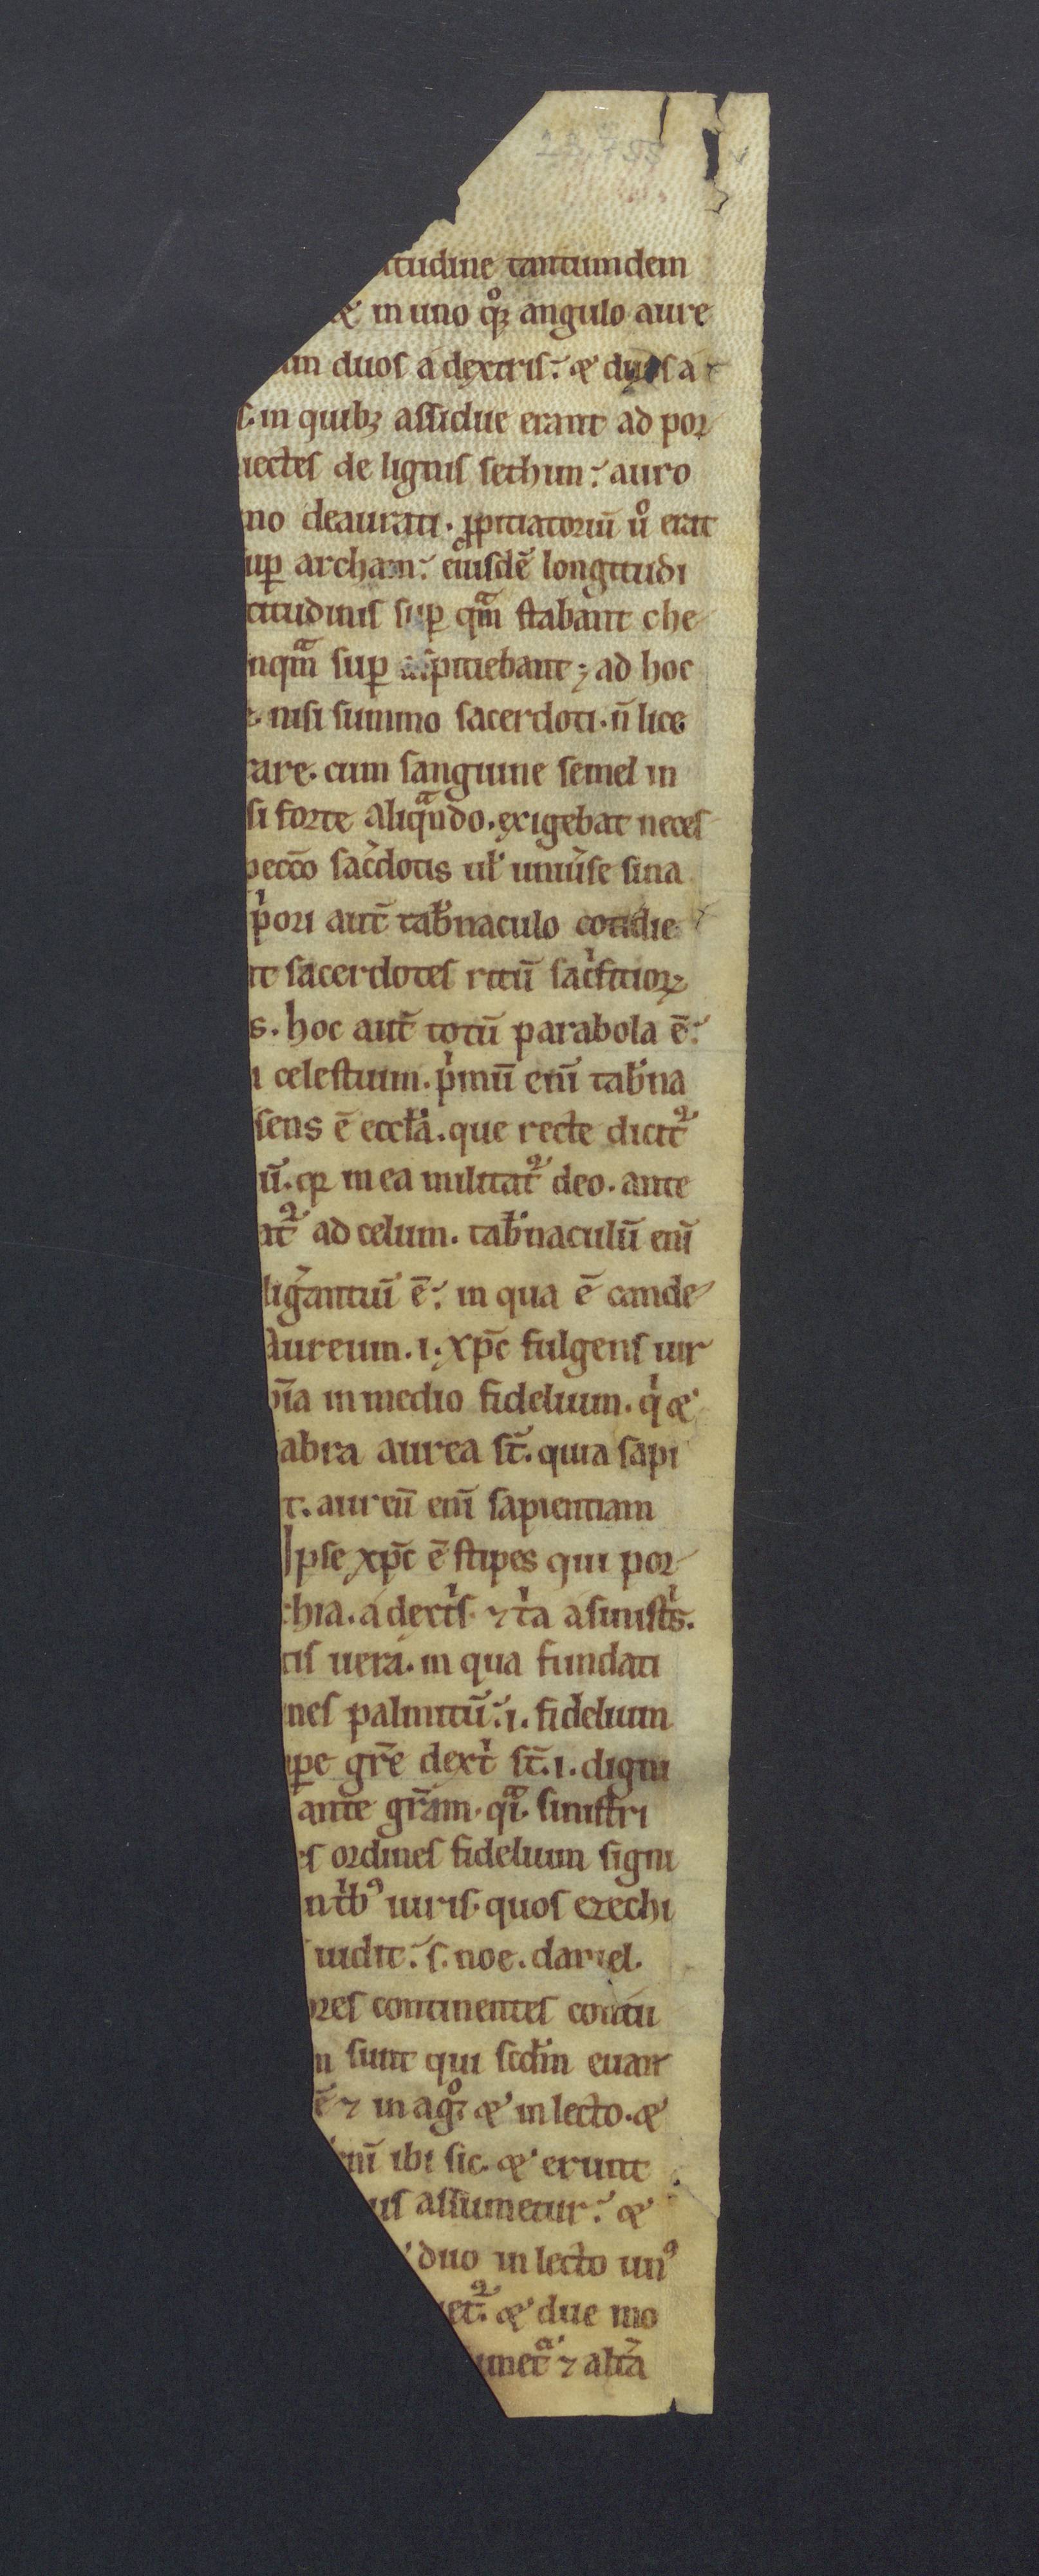 23,753
itudine tantumdem
& in uno qͦꝫ angulo aure
un duos a dextris. & duos a
s. in quibꝫ assidue erant ad por
uectes de lignis sethim. auro
mo deaurati. ꝓpitiatoriū ůo erat
suꝑ archam. eiusdē longitudi
titudinis suꝑ qͣm stabant che
nqͣm suꝑ aspitiebant; ad hoc
e. nisi summo sacerdoti. n̄ lice
rare. cum sanguine semel in
si forte aliqͣndo. exigebat neces
pecc̄o sac̾dotis ul̾ uniu̾se sina
pͥori aut̄ tab̾naculo cotidie
nt sacerdotes ritū sacͥfitioꝝ
s. hoc aut̄ totū parabola ē.
i celestium. pͥmū enī tab̾na
sens ē eccl̄a. que recte dicit᷑
ū. qꝛ in ea militat᷑ deo. ante
at᷑ ad celum. tab̾naculū enī
ligr̾antuī ē. in qua ē cande
Aureum. i. xp̄c fulgens uir
pīa in medio fidelium. qͥ &
abra aurea st̄. quia sapi
t. aureū enī sapientiam
Ipse xp̄c ē stipes qui por
chia. a dextͥs ⁊ tͥa a sinistͥs.
tis uera. in qua fundati
nes palmitū. i. fidelium
ꝑe gr̄e dextͥ st̄. i. digni
ante gr̄am. qͣi. sinistri
es ordines fidelium signi
ntͥbꝰ uiris. quos ezechi
uidit. s. noe. daniel.
ores continentes coniu
n sunt qui scd̄m euan
ē ⁊ in agͦꝫ & in lecto. &
enī ibi sic. & erunt
us assumetur. &
duo in lecto unꝰ
uet᷑. & due mo
umetͣ ⁊ alt̾a